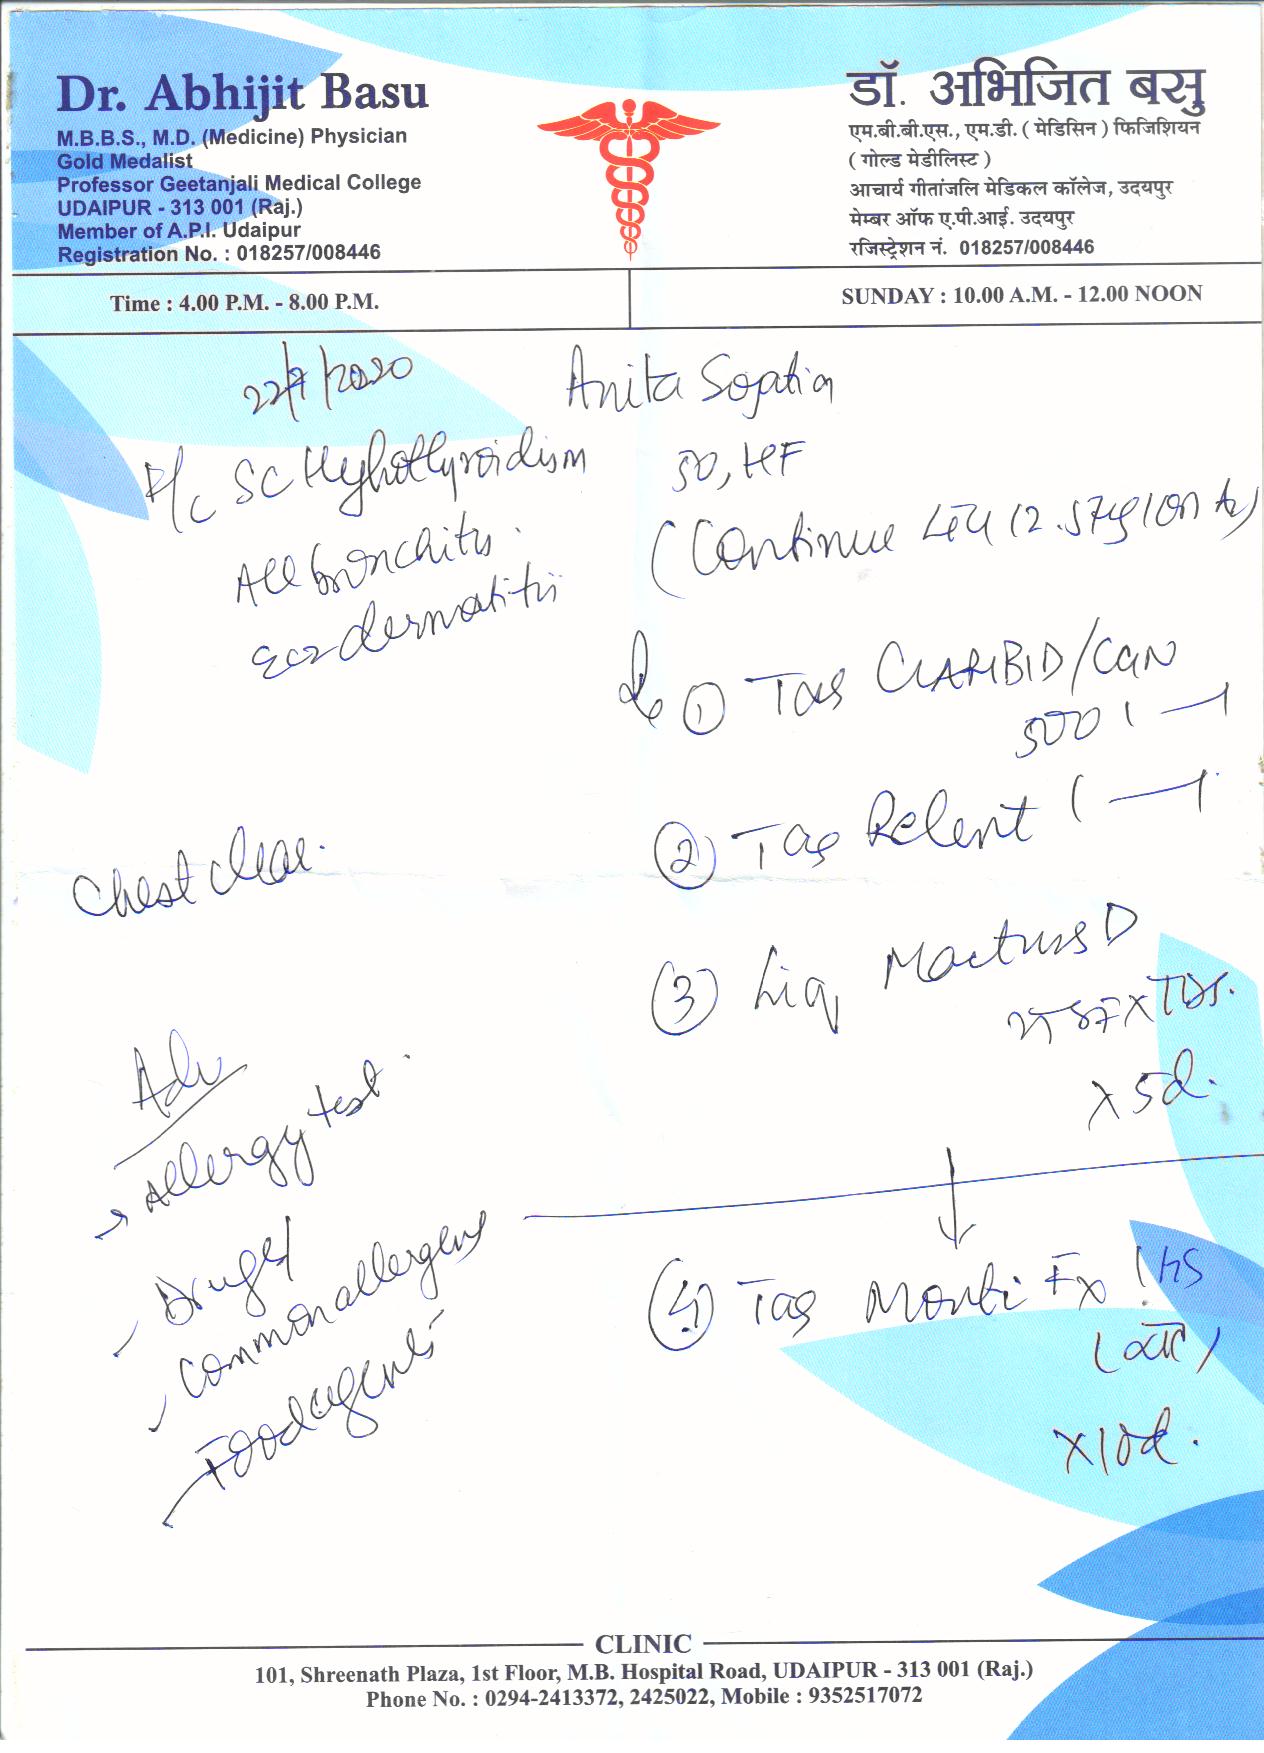 Dr. Abhijit Basu
M.B.B.S., M.D. (Medicine) Physician
Gold Medalist
Professor Geetanjali Medical College
UDAIPUR - 313 001 (Raj.)
Member of A.P.I. Udaipur
Registration No. : 018257/008446
डॉ. अभिजित बसु
एम.बी.बी.एस., एम.डी. ( मेडिसिन ) फिजिशियन
( गोल्ड मेडीलिस्ट )
आचार्य गीतांजलि मेडिकल कॉलेज, उदयपुर
मेम्बर ऑफ ए.पी.आई. उदयपुर
रजिस्ट्रेशन नं. 018257/008446
Time : 4.00 P.M. - 8.00 P.M.
SUNDAY : 10.00 A.M. - 12.00 NOON
22/7/2020
Anita
SC Hypothyroidism
50, HF
(Continue
All bronchitis.
dermatitis
① Tab CLARIBID/
500 1 — 1
② Tab Relent 1 — 1
Chest clear.
③ Liq
X TDS.
X 5d.
Adv
→ Allergy test.
Drugs
common allergens
Food agents
④ Tab Monti Fx 1 hS
X 10d.
CLINIC
101, Shreenath Plaza, 1st Floor, M.B. Hospital Road, UDAIPUR - 313 001 (Raj.)
Phone No. : 0294-2413372, 2425022, Mobile : 9352517072